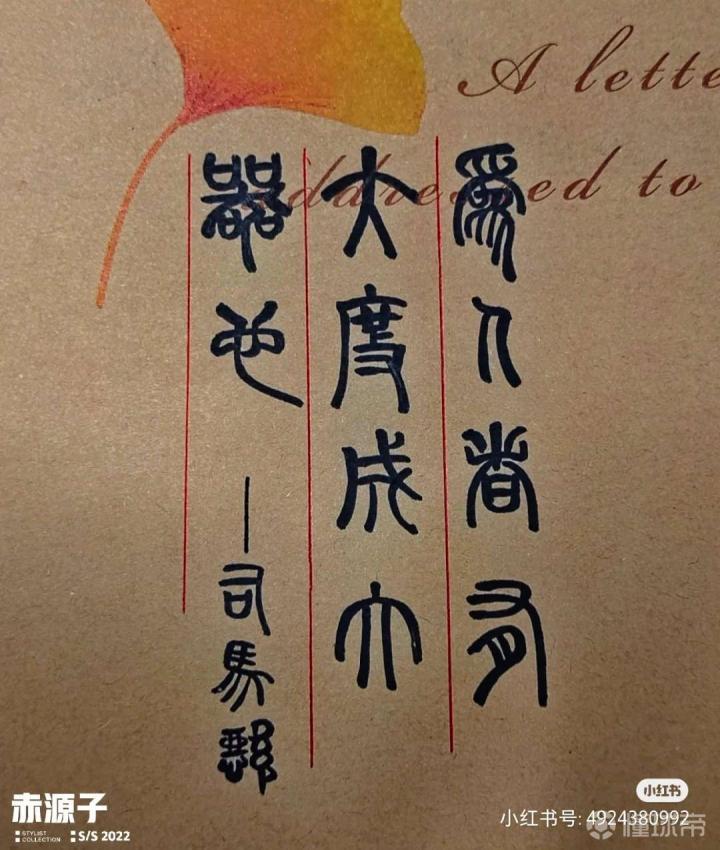 A lette
addressed to
爲人者有
大度成大
器也
—司馬懿
赤源子
STYLIST
COLLECTION
S/S 2022
小红书
小红书号: 4924380992
懂球帝